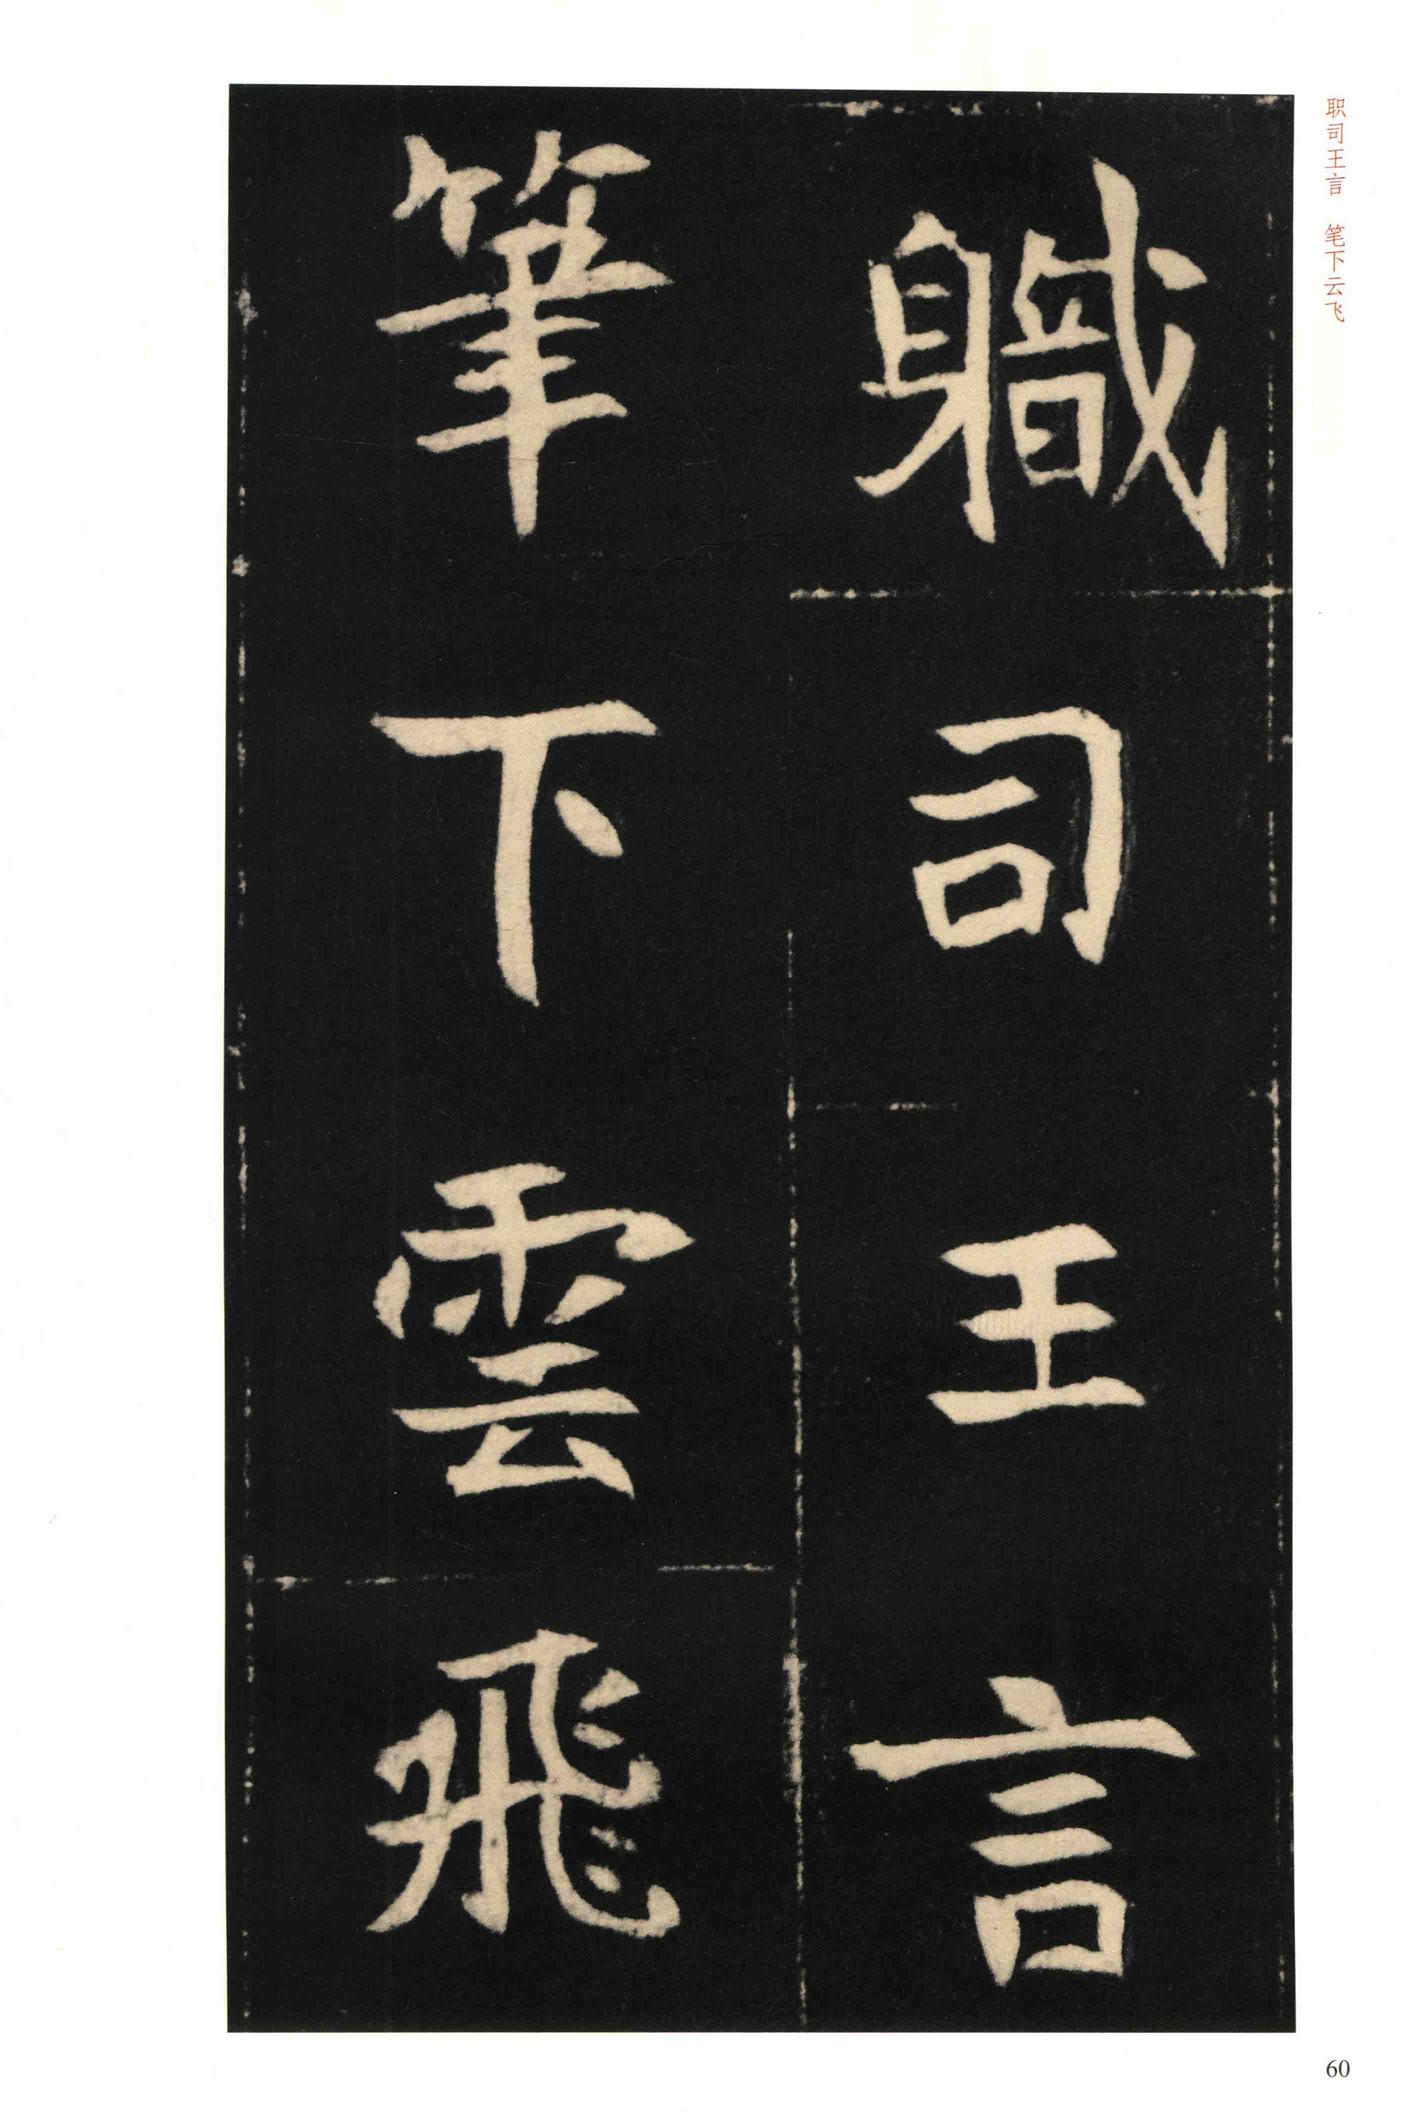 职司王言 笔下云飞
軄司王言
筆下雲飛
60